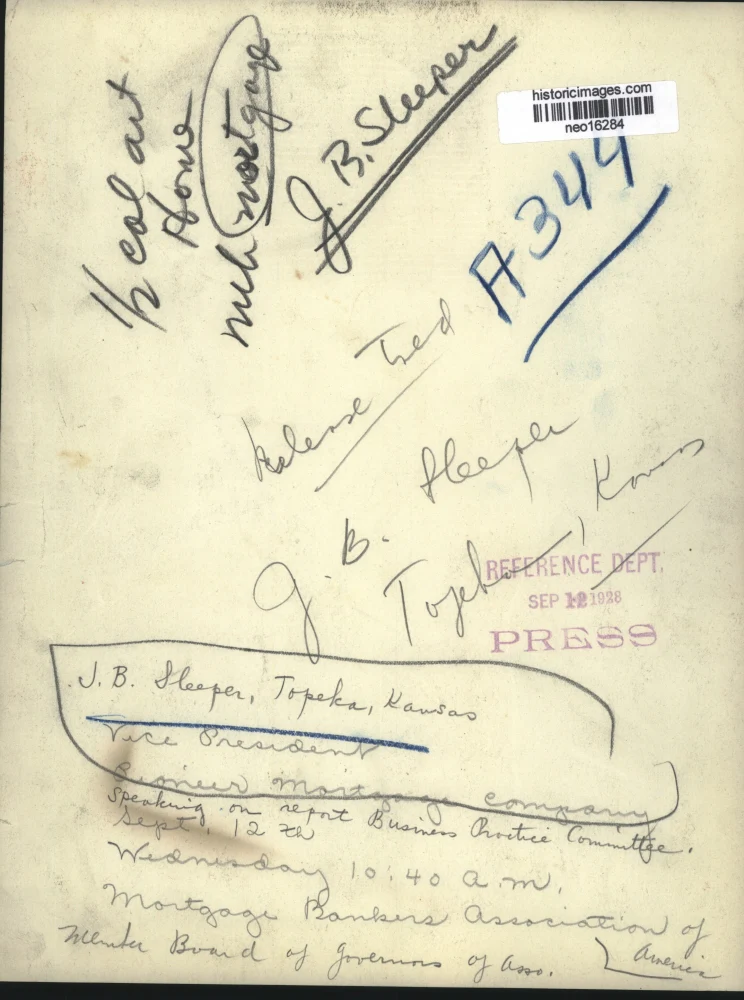 historicimages.com
neo16284
1/2 col art
Home
mch mortgage
J. B. Sleeper
A344
Release
J. B. Sleeper
Topeka, Kansas
REFERENCE DEPT.
SEP 12 1928
PRESS
J. B. Sleeper, Topeka, Kansas
Vice President
Pioneer Mortgage company
Speaking on report Business Practice Committee.
Sept. 12 th
Wednesday 10:40 a.m.
Mortgage Bankers Association of
America
Member Board of Governors of Asso.